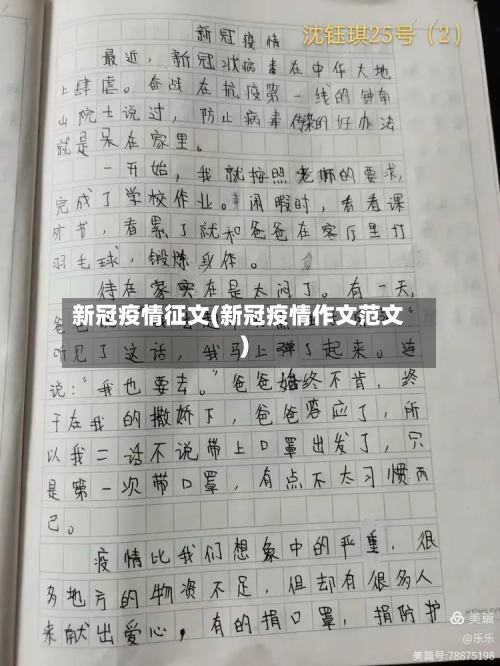 沈钰琪25号（2）
新冠疫情
最近，新冠状病毒在中华大地
上肆虐。奋战在抗疫第一线的钟南
山院士说过，防止病毒传染的好办法
就是呆在家里。
一开始，我就按照老师的要求，
完成了学校作业。闲暇时，看看课
外书，看累了就和爸爸在客厅里打
羽毛球，锻炼身体。
待在家实在是太闷了。有一天，
新冠疫情征文(新冠疫情作文范文
)
听见了这话，我马上弹了起来。连
说："我也要去。"爸爸始终不肯，终
于在我的撒娇下，爸爸答应了，所
以我二话不说带上口罩出发了，只
是第一次带口罩，有点不太习惯而
已。
疫情比我们想象中的严重，很
多地方的物资不足，但却有很多人
来献出爱心，有的捐口罩，捐防护
美篇
@乐乐
美篇号:78875198